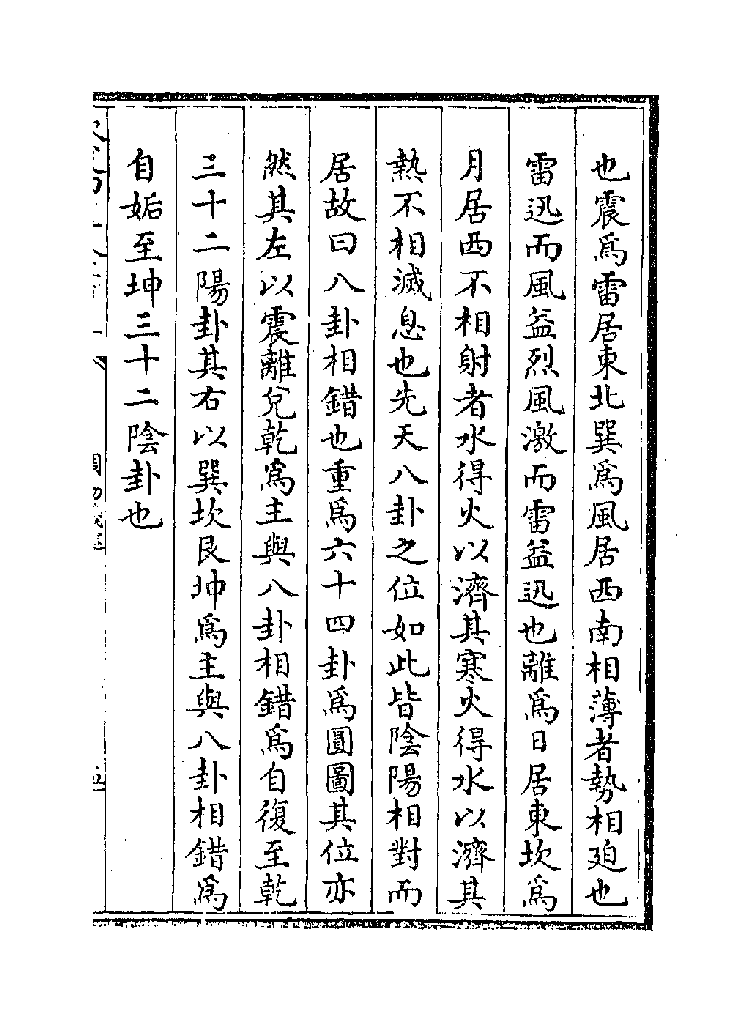 也震爲雷居東北巽爲風居西南相薄者勢相廹也
雷迅而風益烈風激而雷益迅也離爲日居東坎爲
月居西不相射者水得火以濟其寒火得水以濟其
熱不相滅息也先天八卦之位如此皆陰陽相對而
居故曰八卦相錯也重爲六十四卦爲圓圖其位亦
然其左以震離兌乾爲主與八卦相錯爲自復至乾
三十二陽卦其右以巽坎艮坤爲主與八卦相錯爲
自姤至坤三十二陰卦也